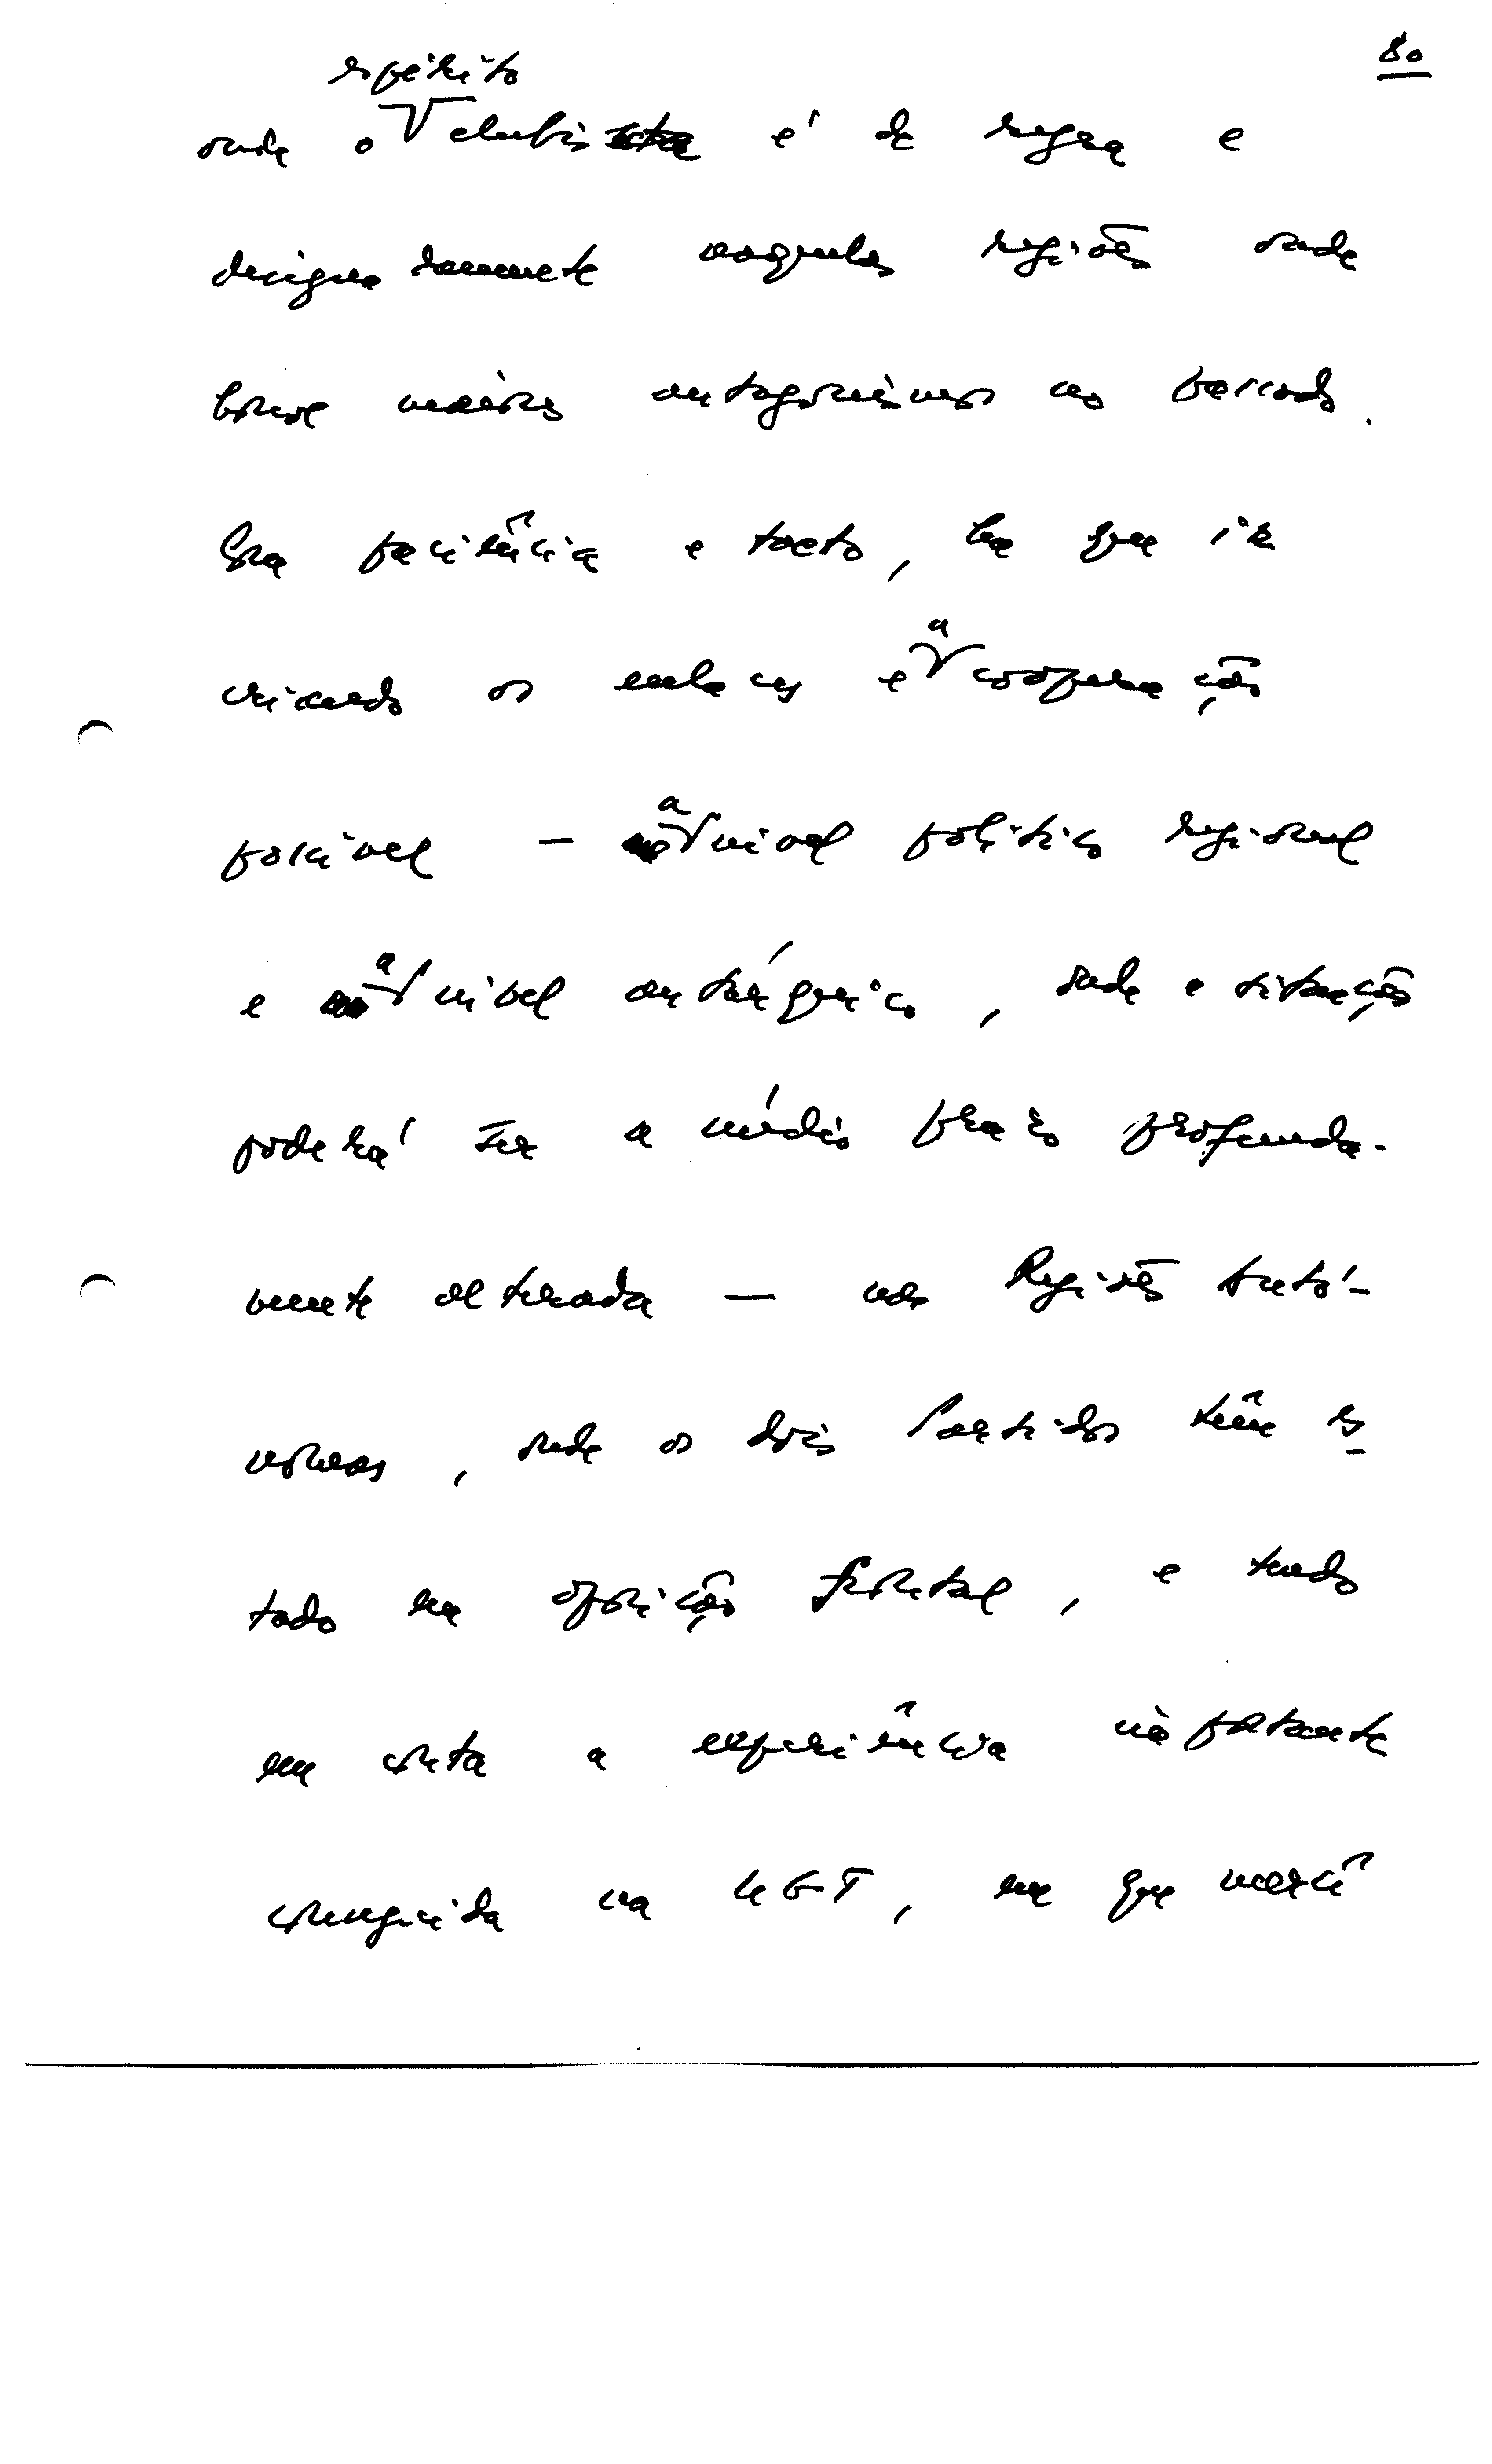 80
espírito
onde o clubis é de regra e
designadamente naquelas regiões onde
houve maiores antagonismos no passado.
Com paciência e tacto, há que ir
criando os enlaces e a cooperação
possível — a nível político regional
e a nível autárquico, onde a situação
poderá ser a médio prazo profunda-
mente alterada — nas Regiões Autó-
nomas, onde os dois Partidos têm es
tado em oposição frontal, e tendo
em conta a experiência importante
conseguida na UGT, em que